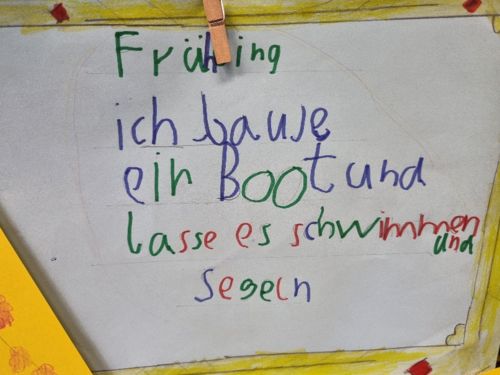 Frühling
ich
ein Boot und
lasse es schwimmen
und
Segeln